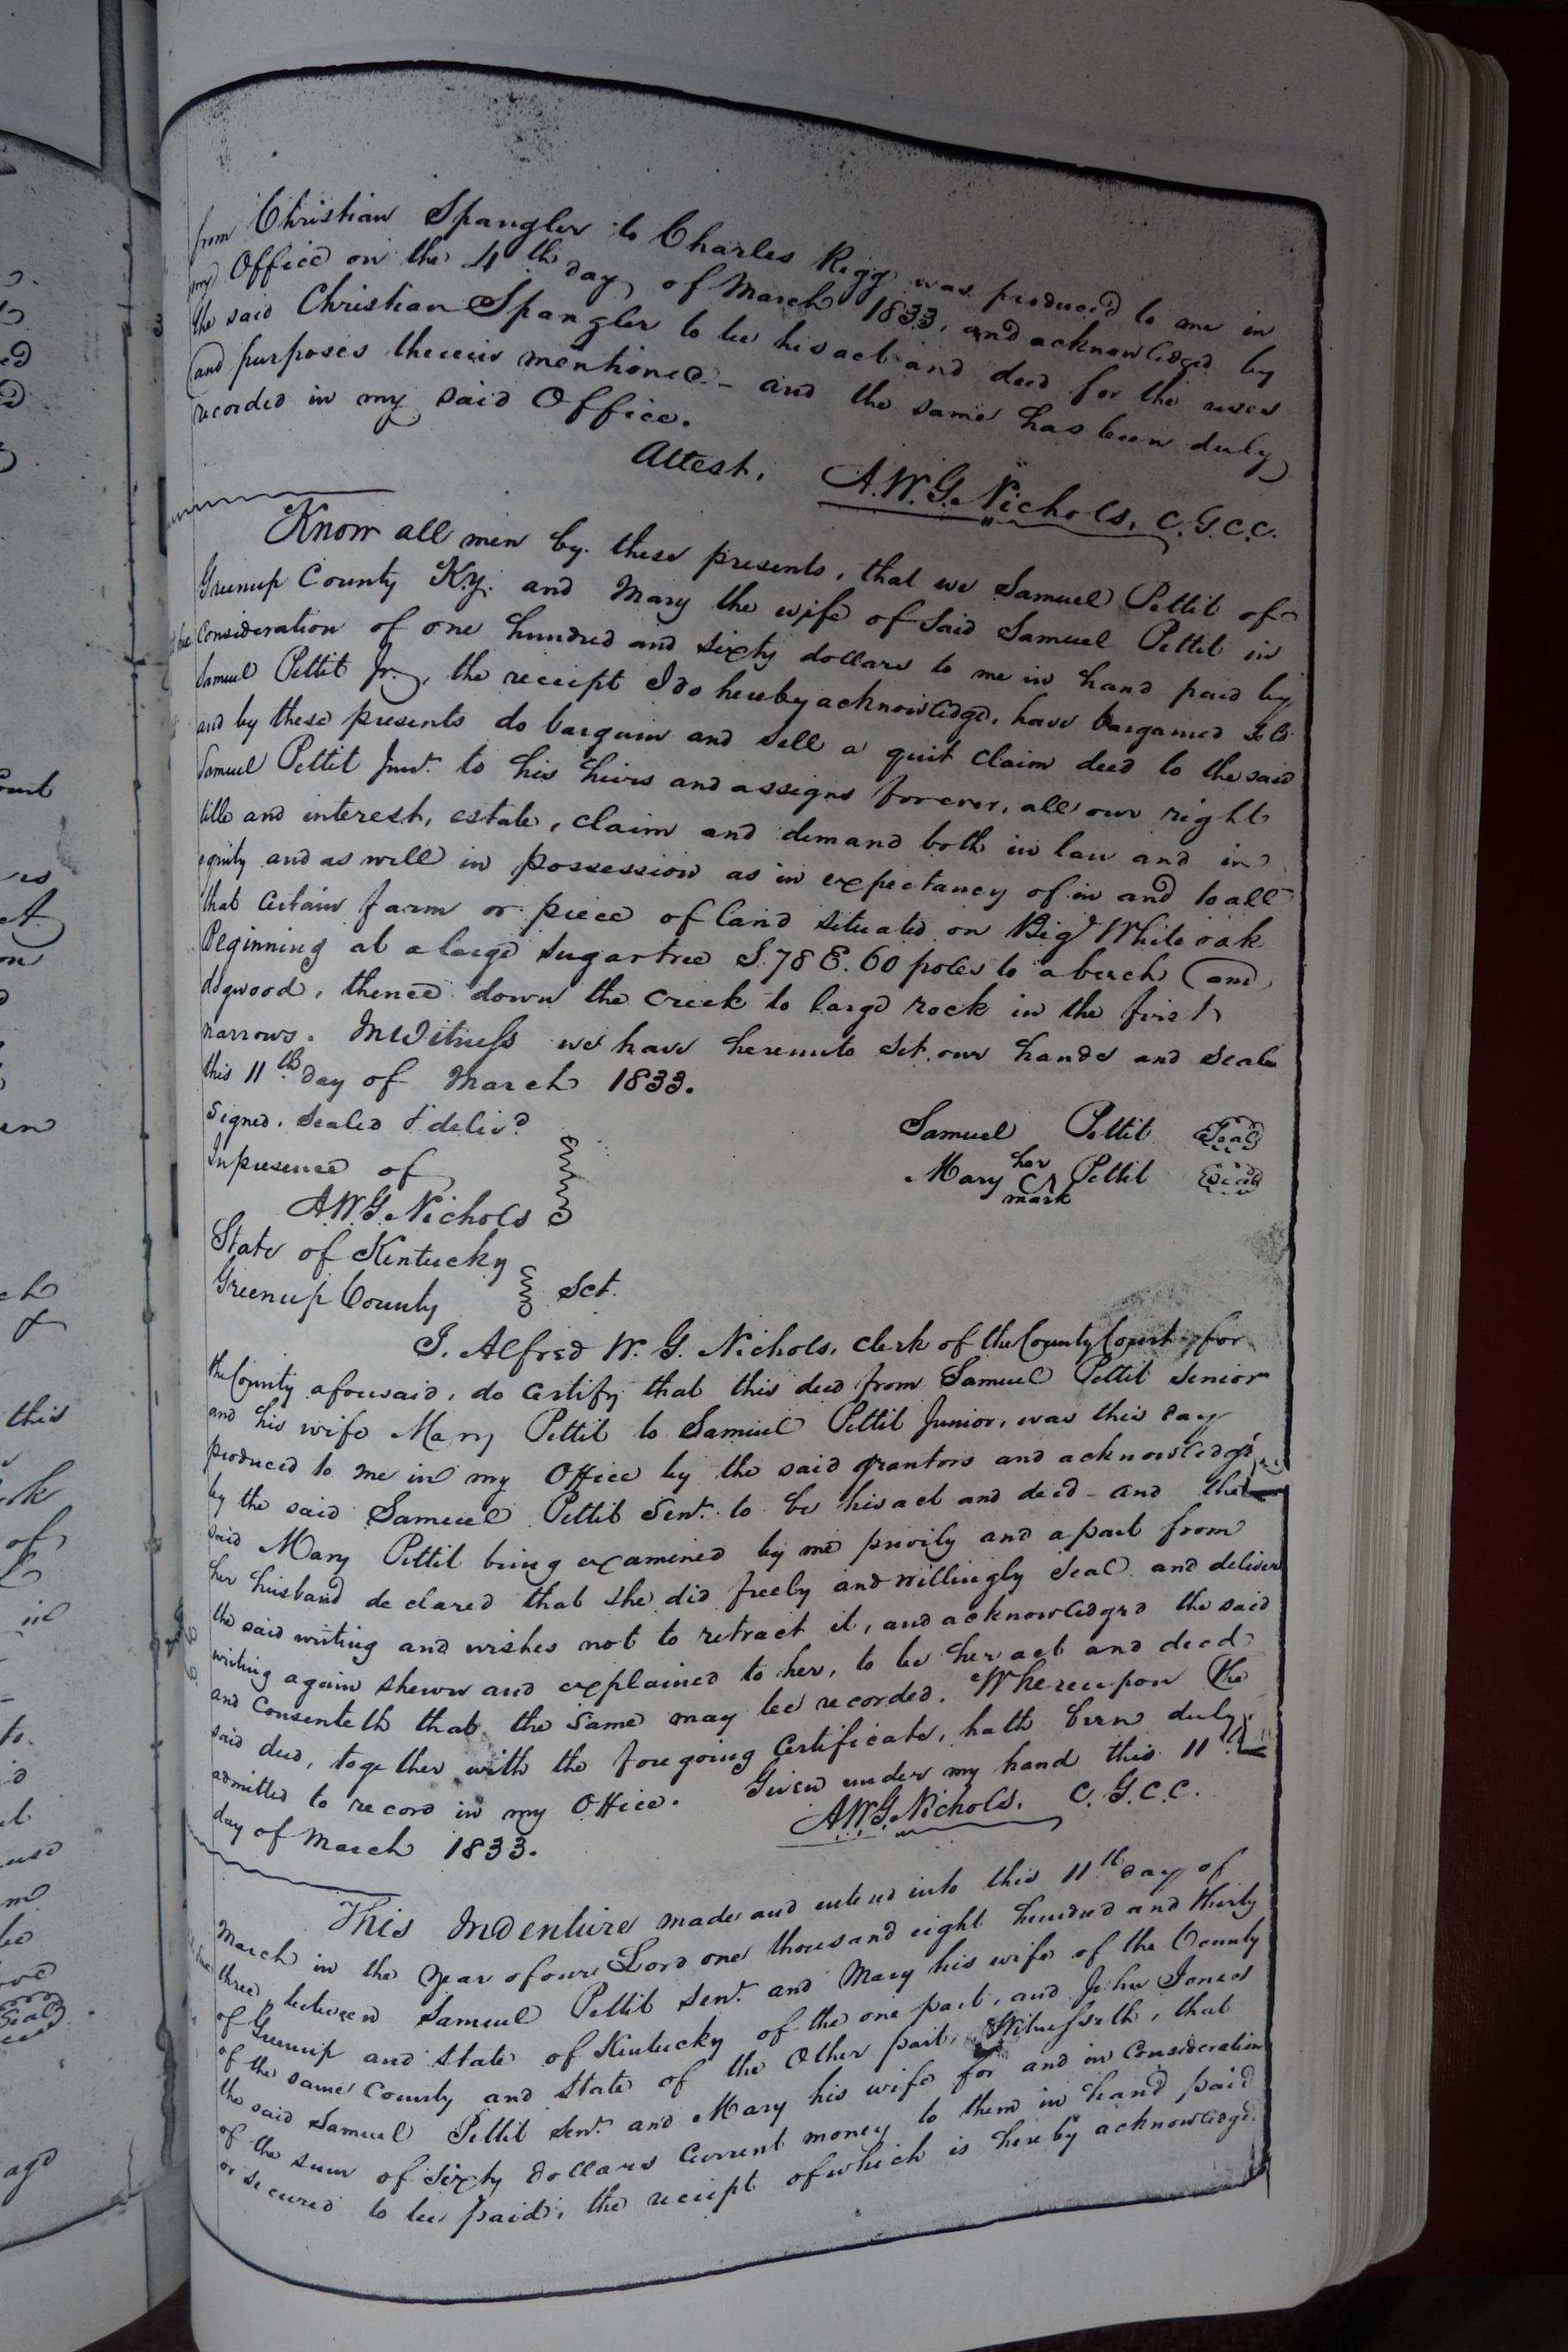 from Christian Spangler to Charles Rigg was produced to me in
my Office on the 4th day of March 1833, and acknowledged by
the said Christian Spangler to be his act and deed for the uses
and purposes therein mentioned - and the same has been duly
recorded in my said Office.
Attest, A.W.G. Nichols, C.G.C.C.
Know all men by these presents, that we Samuel Pettit of
Greenup County Ky. and Mary the wife of said Samuel Pettit in
the consideration of one hundred and sixty dollars to me in hand paid by
Samuel Pettit Jr., the receipt I do hereby acknowledge, have bargained sold
and by these presents do bargain and sell a quit claim deed to the said
Samuel Pettit Junr. to his heirs and assigns forever, all our right
title and interest, estate, claim and demand both in law and in
equity and as well in possession as in expectancy of in and to all
that certain farm or piece of land situated on Big White oak
Beginning at a large sugartree S. 78 E. 60 poles to a beech and
dogwood, thence down the creek to large rock in the first
narrows. In Witness we have hereunto set our hands and seals
this 11th day of March 1833.
Signed, Sealed & deliv'd
In presence of
A.W.G. Nichols
Samuel Pettit Seal
Mary her mark Pettit Seal
State of Kentucky
Greenup County Sct.
I. Alfred W. G. Nichols, Clerk of the County Court for
the County aforesaid, do certify that this deed from Samuel Pettit Senior
and his wife Mary Pettit to Samuel Pettit Junior, was this day
produced to me in my Office by the said grantors and acknowledged
by the said Samuel Pettit Senr. to be his act and deed - and the
said Mary Pettit being examined by me privily and apart from
her husband declared that she did freely and willingly seal and deliver
the said writing and wishes not to retract it, and acknowledged the said
writing again shewn and explained to her, to be her act and deed
and consenteth that the same may be recorded. Whereupon the
said deed, together with the foregoing certificate, hath been duly
admitted to record in my Office. Given under my hand this 11th
day of March 1833. A.W.G. Nichols. C.G.C.C.
This Indenture made and entered into this 11th day of
March in the year of our Lord one thousand eight hundred and thirty
three, between Samuel Pettit Senr. and Mary his wife of the County
of Greenup and State of Kentucky of the one part, and John Jones
of the same County and State of the Other part, Witnesseth, that
the said Samuel Pettit Senr. and Mary his wife for and in Consideration
of the sum of sixty dollars current money to them in hand paid
or secured to be paid, the receipt of which is hereby acknowledged